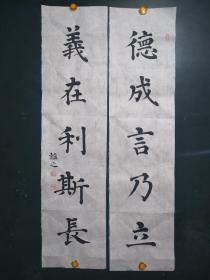 德成言乃立
義在利斯長